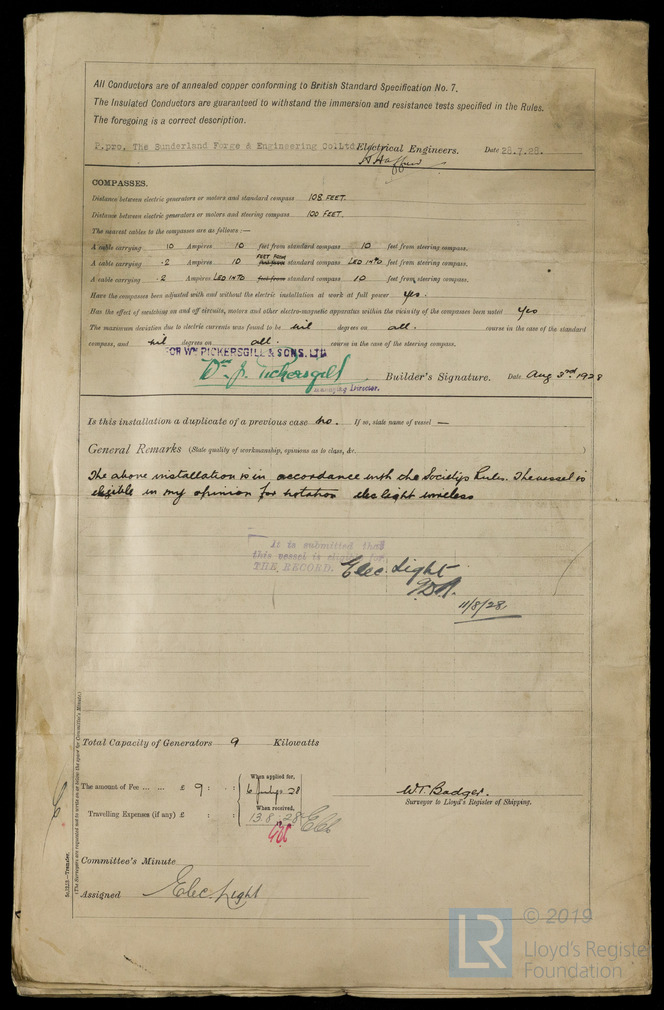 All Conductors are of annealed copper conforming to British Standard Specification No. 7.
The Insulated Conductors are guaranteed to withstand the immersion and resistance tests specified in the Rules.
The foregoing is a correct description.
P.pro. The Sunderland Forge & Engineering Co.Ltd. Electrical Engineers. Date 28.7.28.
COMPASSES.
Distance between electric generators or motors and standard compass 108 FEET.
Distance between electric generators or motors and steering compass 100 FEET.
The nearest cables to the compasses are as follows:—
A cable carrying 10 Ampères 10 feet from standard compass 10 feet from steering compass.
A cable carrying .2 Ampères 10 FEET FROM standard compass LED INTO feet from steering compass.
A cable carrying .2 Ampères LED INTO feet from standard compass 10 feet from steering compass.
Have the compasses been adjusted with and without the electric installation at work at full power yes.
Has the effect of switching on and off circuits, motors and other electro-magnetic apparatus within the vicinity of the compasses been noted yes
The maximum deviation due to electric currents was found to be nil degrees on all. course in the case of the standard
compass, and nil degrees on all. course in the case of the steering compass.
FOR WM PICKERSGILL & SONS, LTD
Wm. J. Pickersgill Builder's Signature. Date Aug 3rd. 1928
Managing Director.
Is this installation a duplicate of a previous case no. If so, state name of vessel —
General Remarks (State quality of workmanship, opinions as to class, &c.
The above installation is in accordance with the Society's Rules. The vessel is
eligible in my opinion for notation elec light wireless
It is submitted that
this vessel is eligible for
THE RECORD. Elec. Light
11/8/28.
Total Capacity of Generators 9 Kilowatts
The amount of Fee ... ... £ 9 : : When applied for, 28
W.T. Badger.
Surveyor to Lloyd's Register of Shipping.
Travelling Expenses (if any) £ : : When received, 13.8.28
Committee's Minute
Assigned Elec. Light
5c,12,25—Transfer.
(The Surveyors are requested not to write on or below the space for Committee's Minute.)
LR © 2019
Lloyd's Register
Foundation